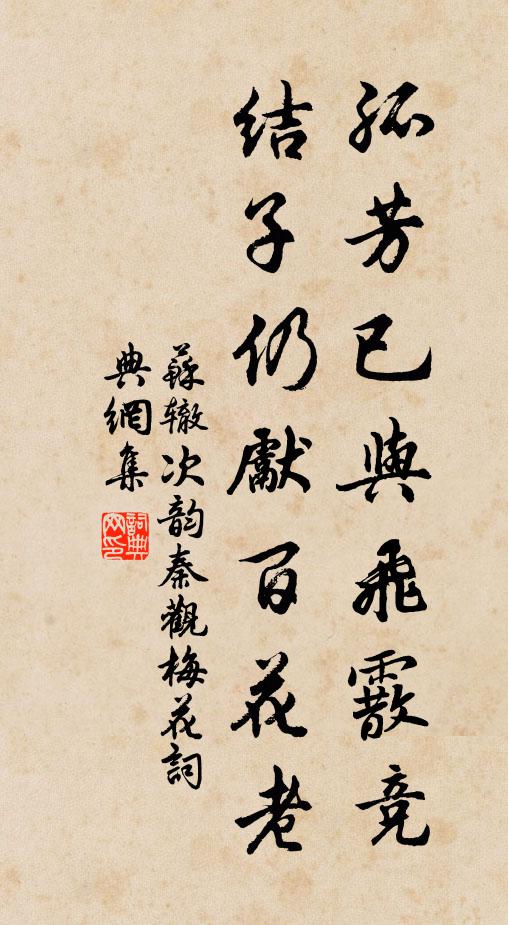 孤芳已與飛霰競
結子仍獻百花老
蘇轍次韵秦觀梅花詞
典網集
詞典網印